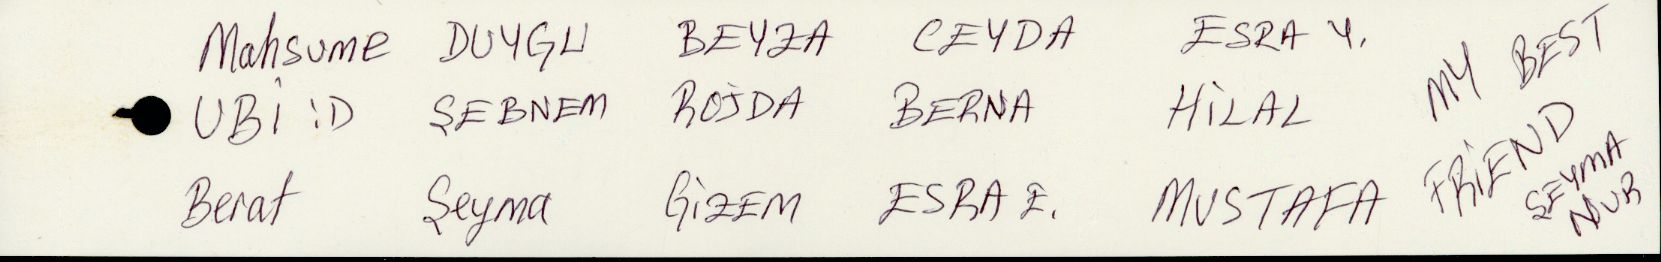 Mahsume DUYGU BEYZA CEYDA ESRA Y.
UBİ :D ŞEBNEM ROJDA BERNA HİLAL
Berat Şeyma GİZEM ESRA E. MUSTAFA
MY BEST
FRİEND
ŞEYMA
NUR